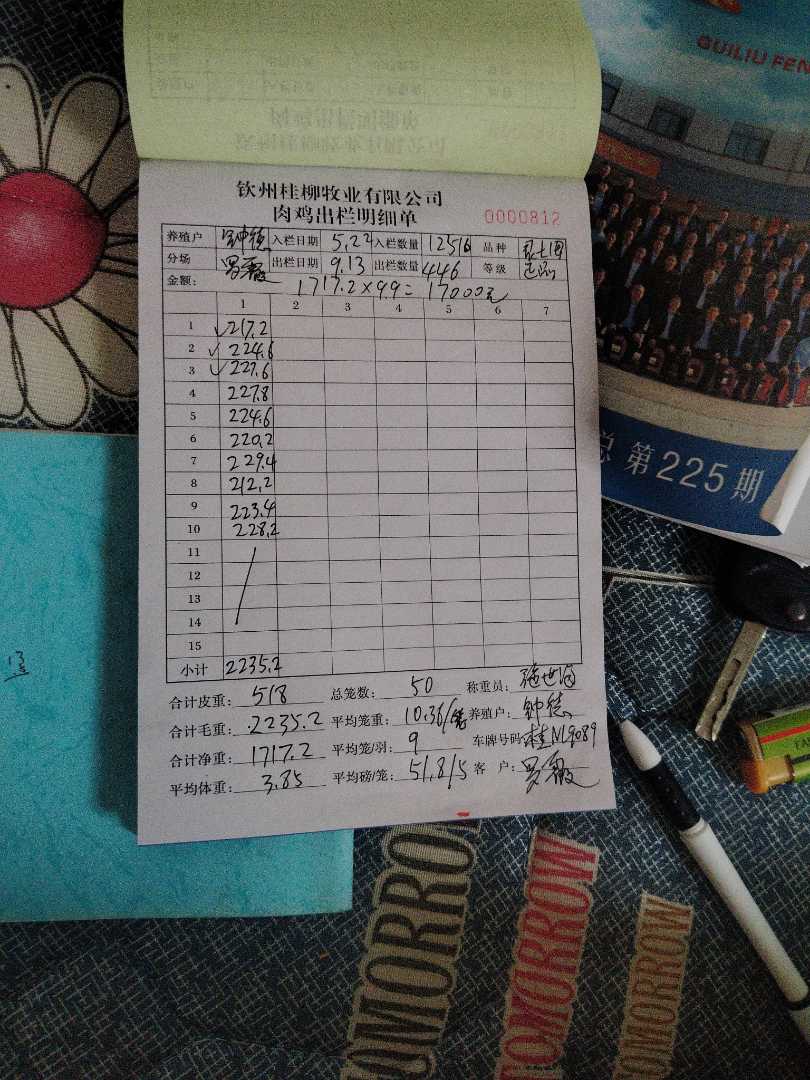 GUILIU FEN
钦州桂柳牧业有限公司
肉鸡出栏明细单 0000812
养殖户 钟德 入栏日期 5.22 入栏数量 12516 品种
分场 罗薇 出栏日期 9.13 出栏数量 446 等级
金额: 1717.2×9.9=17000元
1 2 3 4 5 6 7
1 217.2
2 224.6
3 227.6
4 227.8
5 224.6
6 220.2
7 229.4
8 212.2
9 223.4
10 228.2
11
12
13
14
15
小计 2235.2
合计皮重: 518 总笼数: 50 称重员:
合计毛重: 2235.2 平均笼重: 10.36/笼 养殖户: 钟德
合计净重: 1717.2 平均笼/羽: 9 车牌号码: 桂N19089
平均体重: 3.85 平均磅/笼: 51.8/5 客户: 罗薇
总第225期
TOMORROW
TOMORROW
TOMORROW